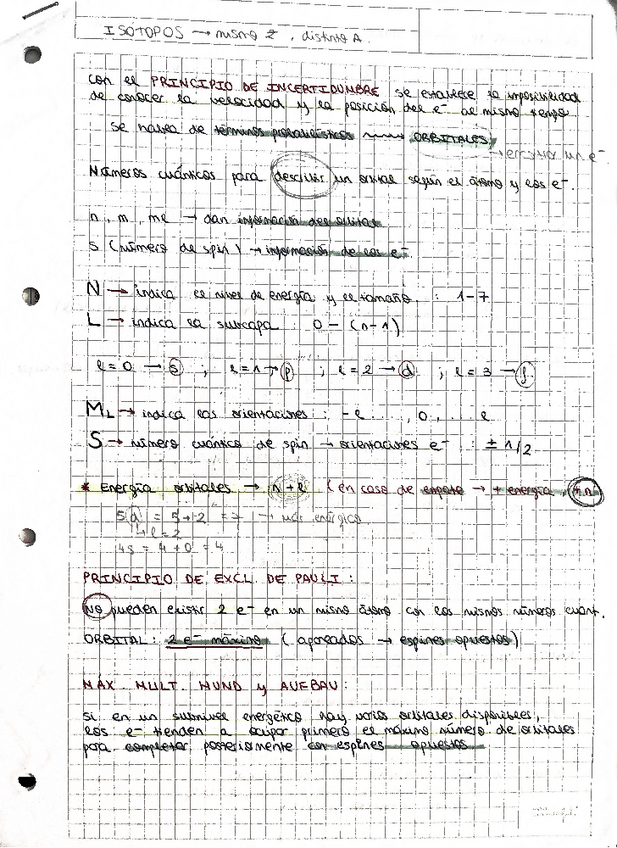 ISÓTOPOS → mismo Z, distinto A.
con el PRINCIPIO DE INCERTIDUMBRE se establece la imposibilidad
de conocer la velocidad y la posición del e⁻ al mismo tiempo
se habla de términos probabilísticos → ORBITALES
→ encontrar un e⁻.
Números cuánticos para describir un orbital según el átomo y los e⁻.
n, m, ml → dan información del orbital
S (número de spin) → información de los e⁻
N → indica el nivel de energía y el tamaño : 1-7
L → indica la subcapa : 0 - (n-1)
l=0 → s , l=1 → p ; l=2 → d ; l=3 → f
ML → indica las orientaciones : -l ... , 0, ... l
S → número cuántico de spin → orientaciones e⁻ : ± 1/2
* Energía orbitales → n+l (en caso de empate → + energía, + n)
5d = 5+2 = 7 → más enérgico
↳ l=2
4s = 4+0 = 4
PRINCIPIO DE EXCL. DE PAULI :
NO pueden existir 2 e⁻ en un mismo átomo con los mismos números cuánt.
ORBITAL : 2 e⁻ máximo (apareados → espines opuestos)
MÁX. MULT. HUND y AUFBAU :
si en un subnivel energético hay varios orbitales disponibles,
los e⁻ tienden a ocupar primero el máximo número de orbitales
para completar posteriormente con espines opuestos